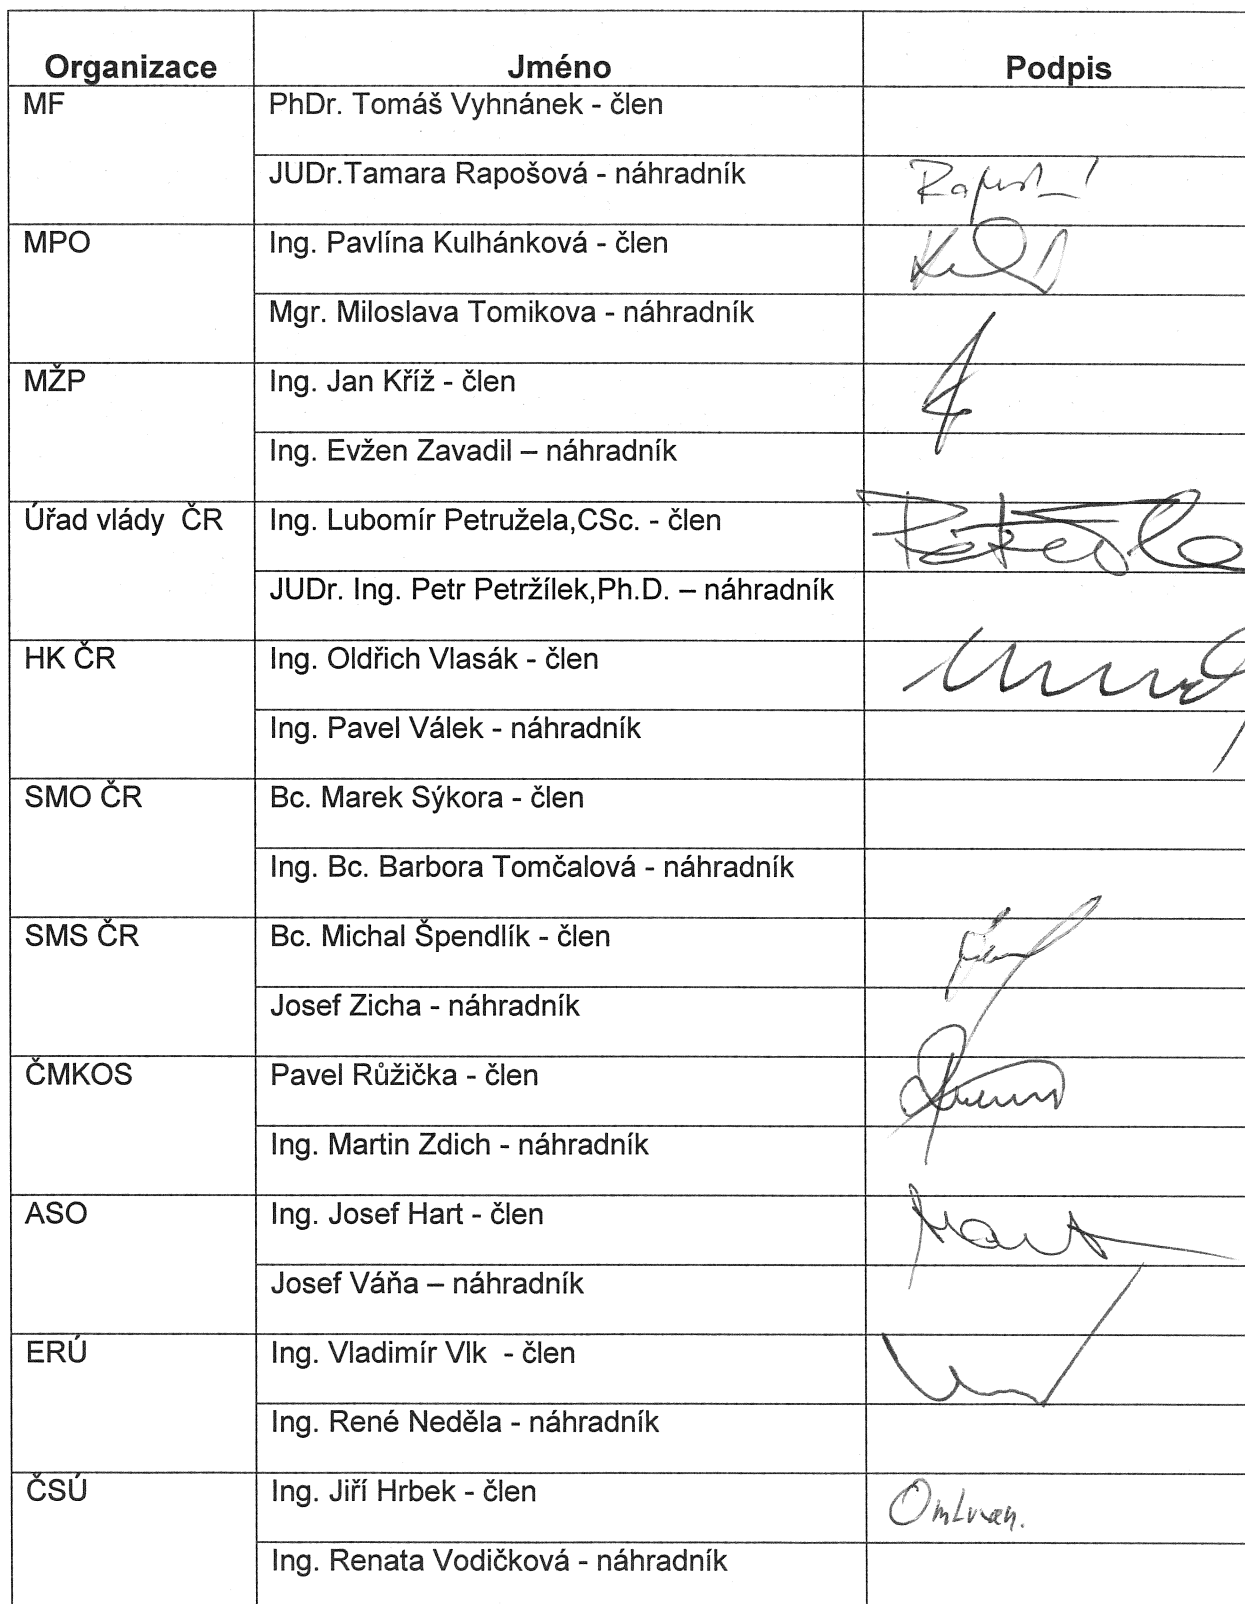 Organizace Jméno Podpis
MF PhDr. Tomáš Vyhnánek - člen
JUDr.Tamara Rapošová - náhradník
MPO Ing. Pavlína Kulhánková - člen
Mgr. Miloslava Tomikova - náhradník
MŽP Ing. Jan Kříž - člen
Ing. Evžen Zavadil – náhradník
Úřad vlády ČR Ing. Lubomír Petružela,CSc. - člen
JUDr. Ing. Petr Petržílek,Ph.D. – náhradník
HK ČR Ing. Oldřich Vlasák - člen
Ing. Pavel Válek - náhradník
SMO ČR Bc. Marek Sýkora - člen
Ing. Bc. Barbora Tomčalová - náhradník
SMS ČR Bc. Michal Špendlík - člen
Josef Zicha - náhradník
ČMKOS Pavel Růžička - člen
Ing. Martin Zdich - náhradník
ASO Ing. Josef Hart - člen Hart
Josef Váňa – náhradník
ERÚ Ing. Vladimír Vlk - člen
Ing. René Neděla - náhradník
ČSÚ Ing. Jiří Hrbek - člen Omluven.
Ing. Renata Vodičková - náhradník